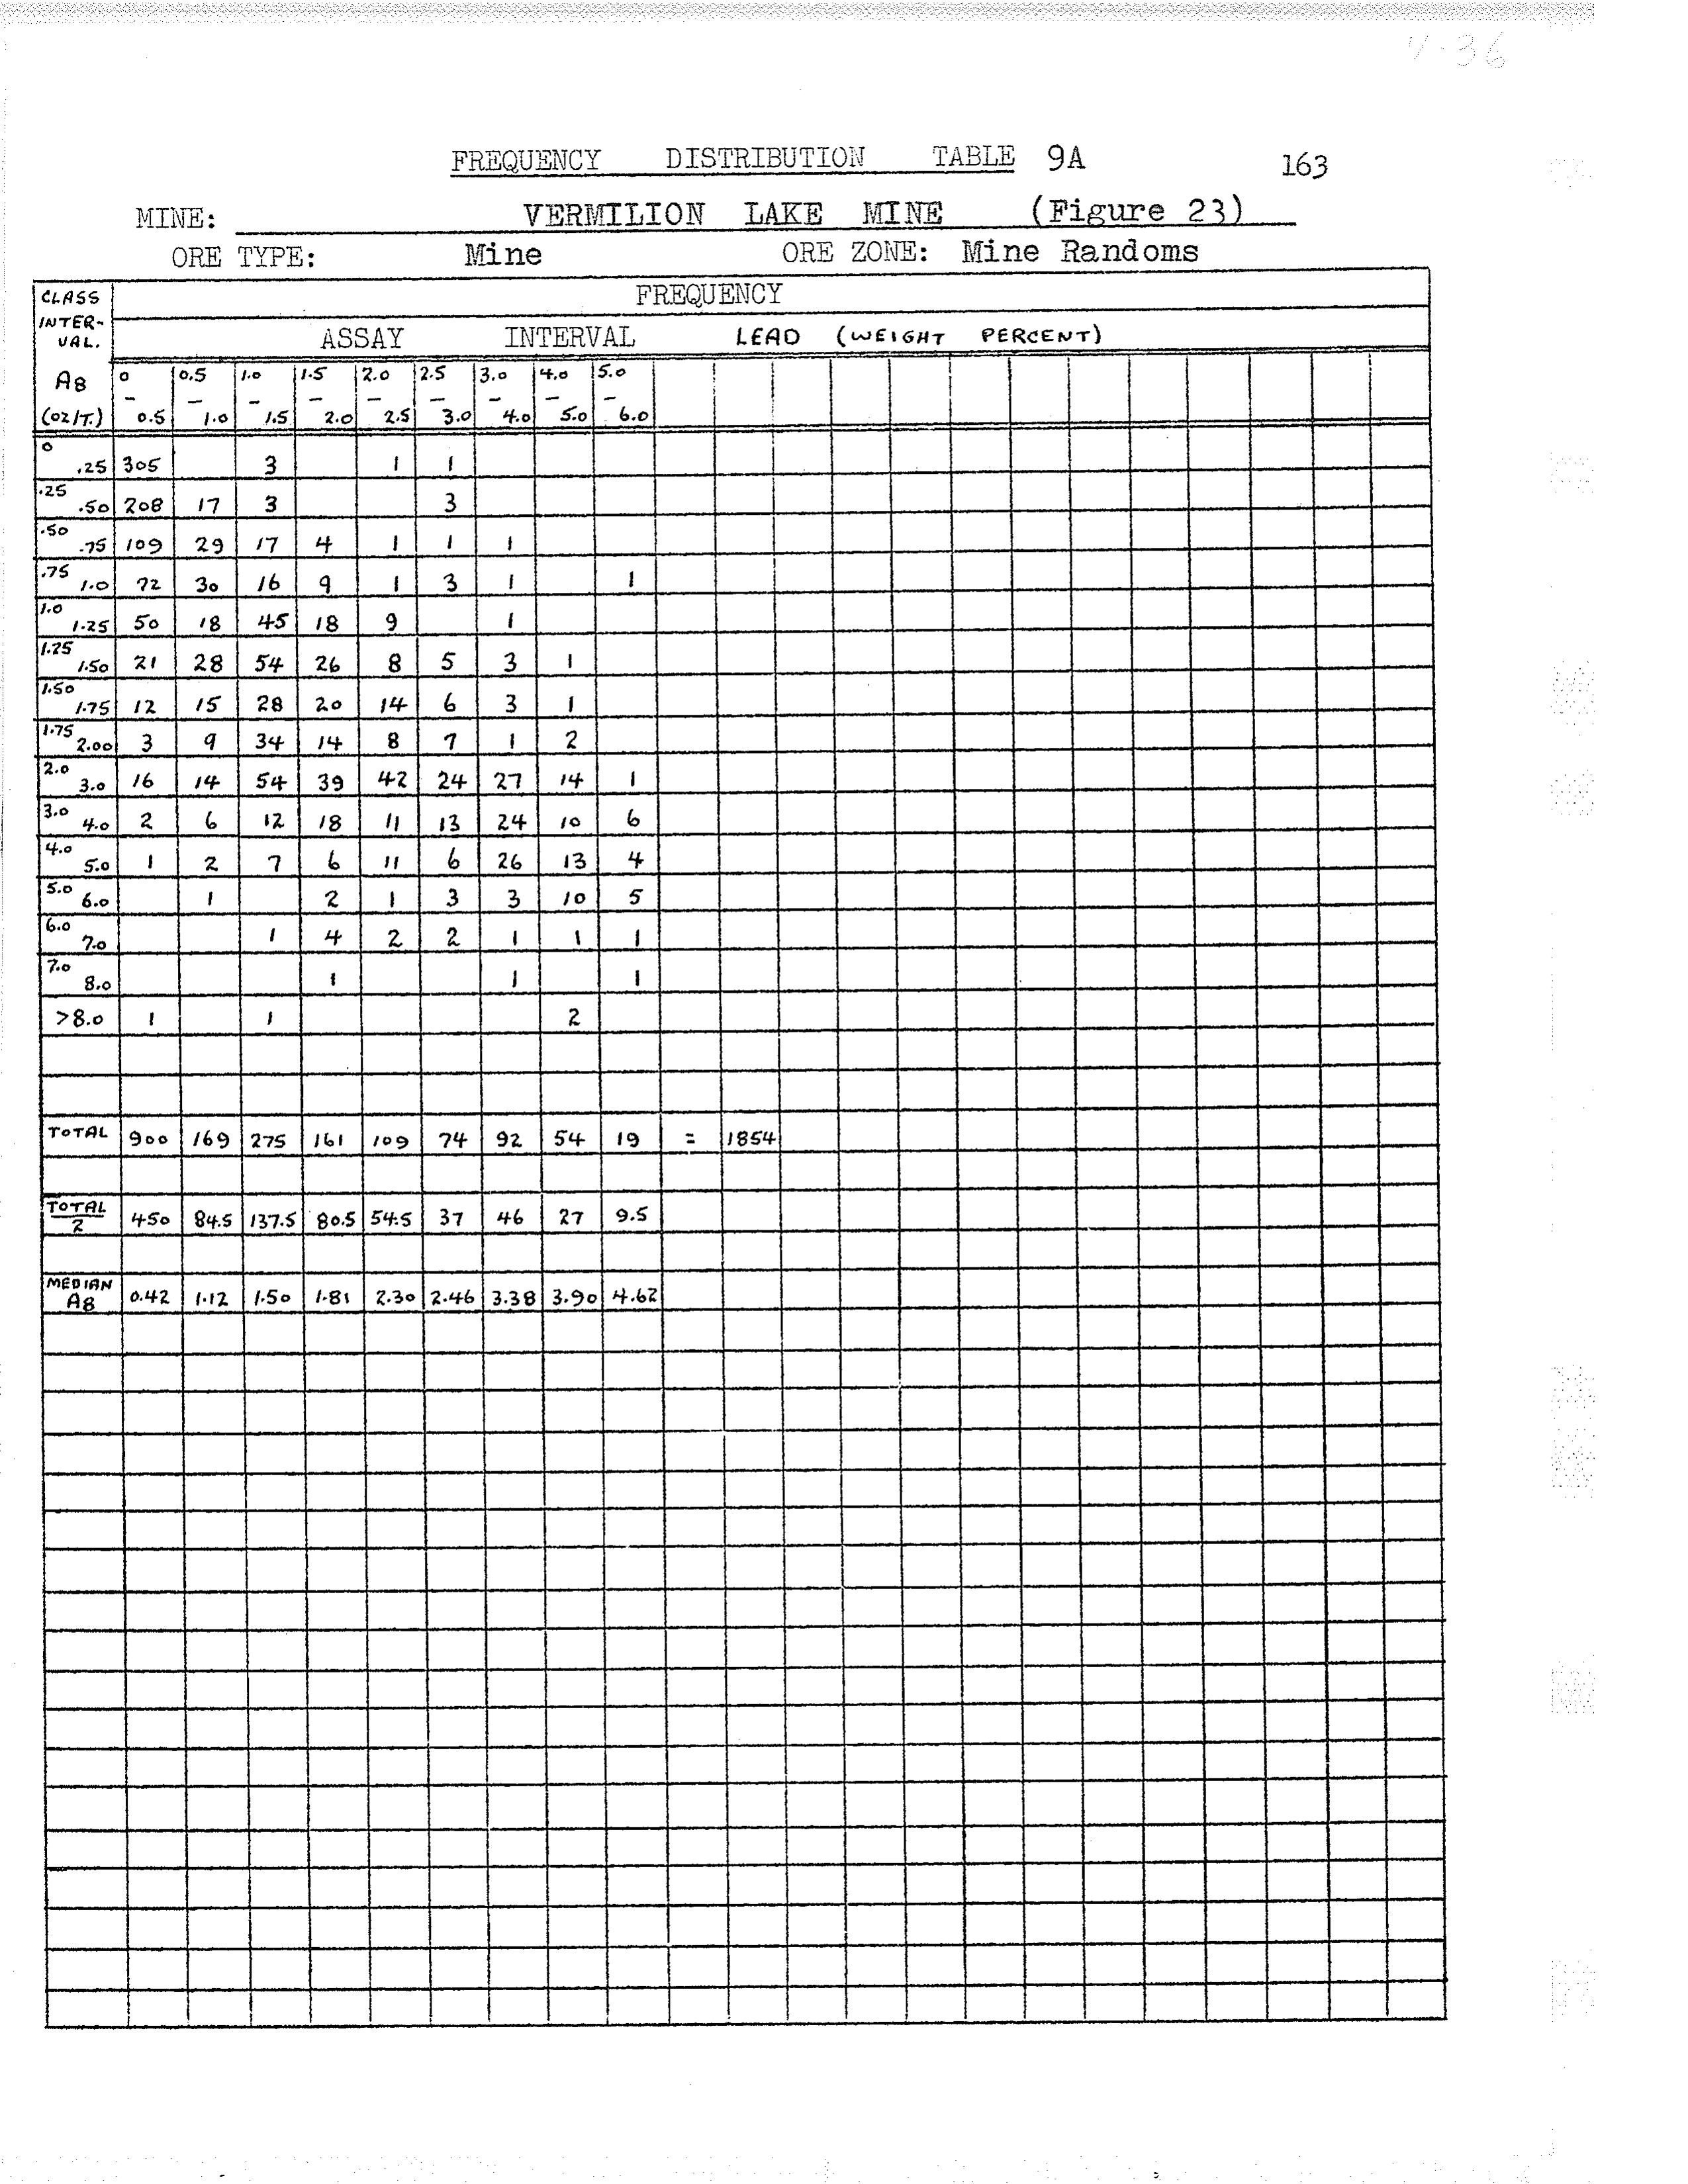 4-36
FREQUENCY DISTRIBUTION TABLE 9A 163
MINE: VERMILION LAKE MINE (Figure 23)
ORE TYPE: Mine ORE ZONE: Mine Randoms
CLASS INTER-VAL. FREQUENCY
ASSAY INTERVAL LEAD (WEIGHT PERCENT)
Ag (oz/T.) 0 - 0.5 0.5 - 1.0 1.0 - 1.5 1.5 - 2.0 2.0 - 2.5 2.5 - 3.0 3.0 - 4.0 4.0 - 5.0 5.0 - 6.0
0 .25 305 3 1 1
.25 .50 208 17 3 3
.50 .75 109 29 17 4 1 1 1
.75 1.0 72 30 16 9 1 3 1 1
1.0 1.25 50 18 45 18 9 1
1.25 1.50 21 28 54 26 8 5 3 1
1.50 1.75 12 15 28 20 14 6 3 1
1.75 2.00 3 9 34 14 8 7 1 2
2.0 3.0 16 14 54 39 42 24 27 14 1
3.0 4.0 2 6 12 18 11 13 24 10 6
4.0 5.0 1 2 7 6 11 6 26 13 4
5.0 6.0 1 2 1 3 3 10 5
6.0 7.0 1 4 2 2 1 1 1
7.0 8.0 1 1 1
>8.0 1 1 2
TOTAL 900 169 275 161 109 74 92 54 19 = 1854
TOTAL/2 450 84.5 137.5 80.5 54.5 37 46 27 9.5
MEDIAN Ag 0.42 1.12 1.50 1.81 2.30 2.46 3.38 3.90 4.62